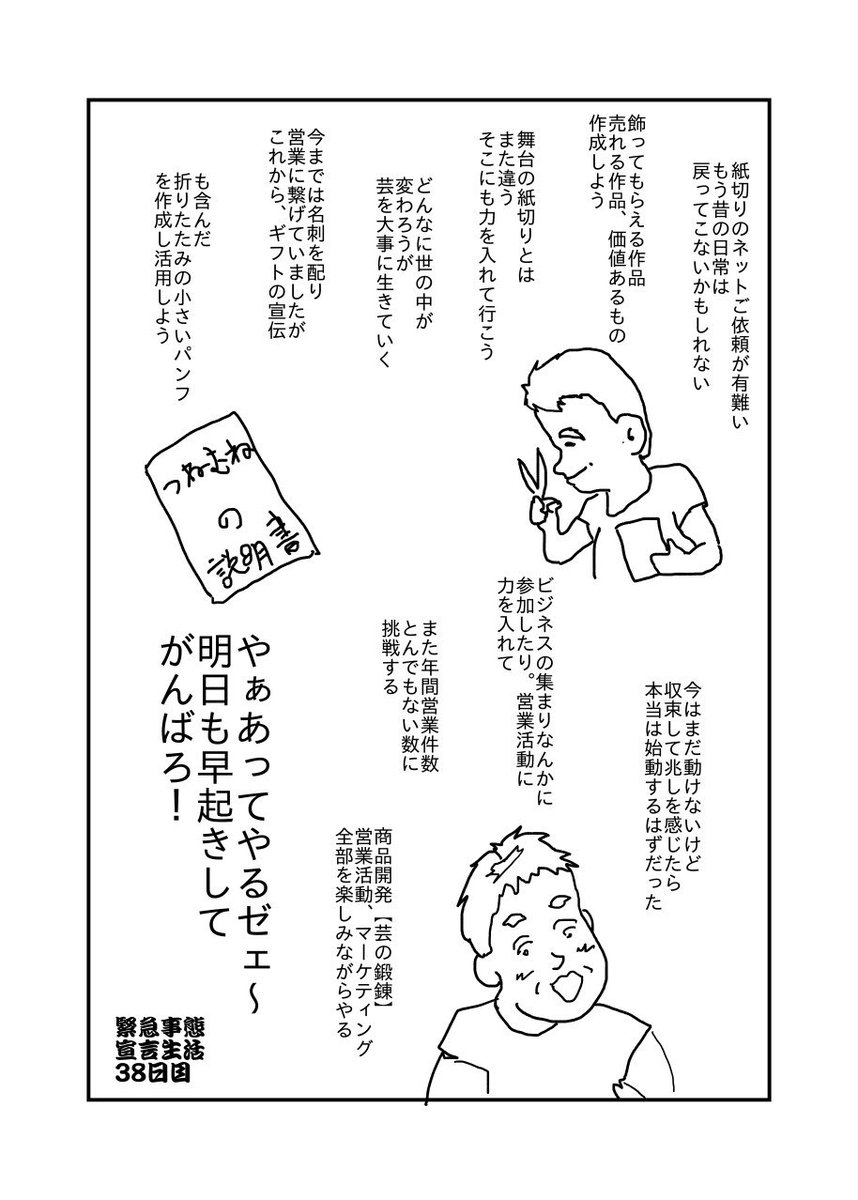 紙切りのネットご依頼が有難い
もう昔の日常は
戻ってこないかもしれない
飾ってもらえる作品
売れる作品、価値あるもの
作成しよう
舞台の紙切りとは
また違う
そこにも力を入れて行こう
どんなに世の中が
変わろうが
芸を大事に生きていく
今までは名刺を配り
営業に繋げていましたが
これから、ギフトの宣伝
も含んだ
折りたたみの小さいパンフ
を作成し活用しよう
つねーむね
の
説明書
今はまだ動けないけど
収束して兆しを感じたら
本当は始動するはずだった
ビジネスの集まりなんかに
参加したり。営業活動に
力を入れて
また年間営業件数
とんでもない数に
挑戦する
商品開発【芸の鍛錬】
営業活動、マーケティング
全部を楽しみながらやる
やぁあってやるゼェ〜
明日も早起きして
がんばろ！
緊急事態
宣言生活
38日目